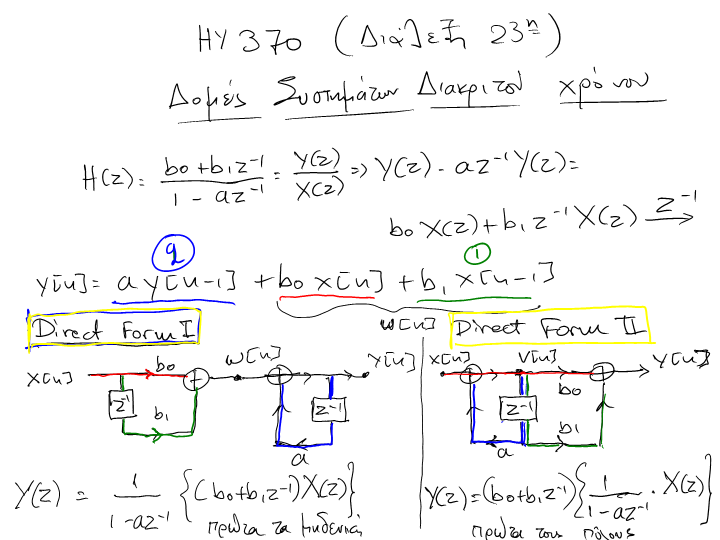 HY 370 (Διάλεξη 23η)
Δομές Συστημάτων Διακριτού χρόνου
H(z) = (b0+b1z^-1)/(1 - az^-1) = Y(z)/X(z) => Y(z) - az^-1 Y(z) =
b0 X(z) + b1 z^-1 X(z) Z^-1 →
2 1
y[n] = a y[n-1] + b0 x[n] + b1 x[n-1]
w[n]
Direct Form I
Direct Form II
x[n] b0 w[n] y[n]
z^-1 b1 z^-1 a
x[n] v[n] b0 y[n]
z^-1 a b1
Y(z) = 1/(1-az^-1) {(b0+b1z^-1)X(z)}
πρώτα τα μηδενικά
Y(z) = (b0+b1z^-1){1/(1-az^-1) · X(z)}
πρώτα τους πόλους